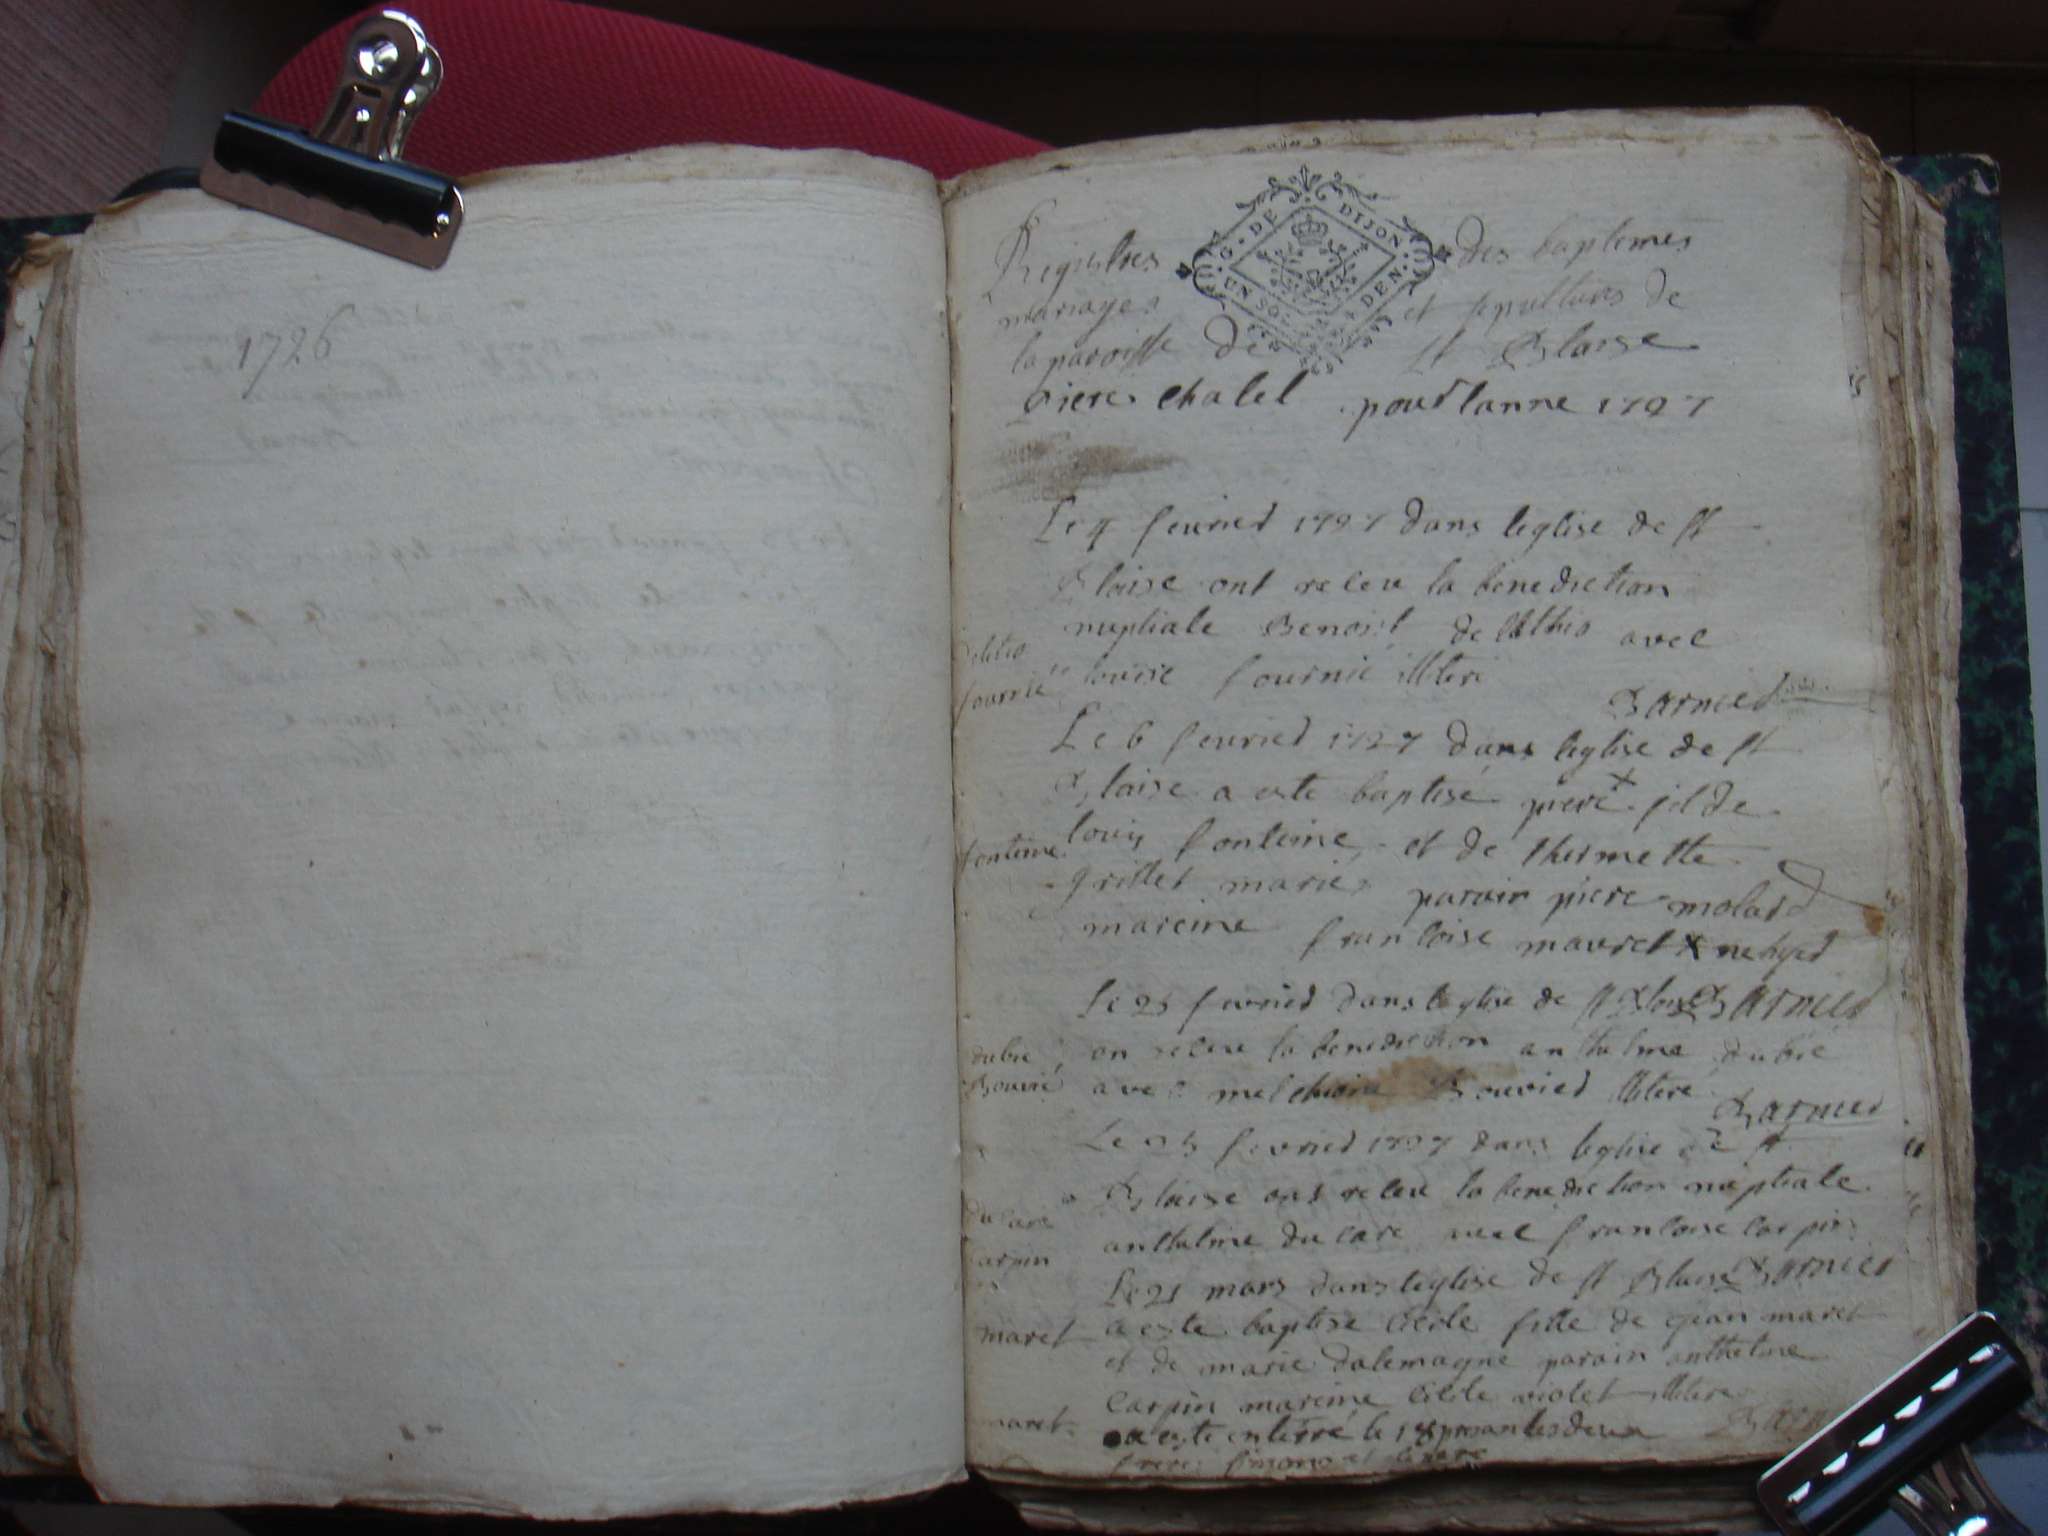 1726
Registres des baptemes
mariages et sepultures de
la paroisse de st Blaise
piere chatel pour lanne 1727
G · DE DIJON
UN SOL DEN
Le 4 feurier 1727 dans leglise de st
Blaise ont receu la benediction
nuptiale Benoist avec
fournie louise fournie illitere
Barnier
Le 6 feurier 1727 dans leglise de st
Blaise a este baptisé piere fil de
fonteine louis fonteine et de thermette
grillet maries parain piere molard
mareine francoise mauret
Le 25 feurier dans leglise de st Blaise Barnier
dubie on receu la benediction anthelme dubie
Bouvié avec Bouvier illitere
Barnier
Le 25 feurier 1727 dans leglise de st
ducare Blaise ons receu la benediction nuptiale
anthelme ducare avec francoise carpin
carpin
Le 21 mars dans leglise de st Blaise Barnier
maret a este baptise cicile fille de jean maret
et de marie dalemagne parain anthelme
carpin mareine cicile violet illitere
maret a este interré le 18